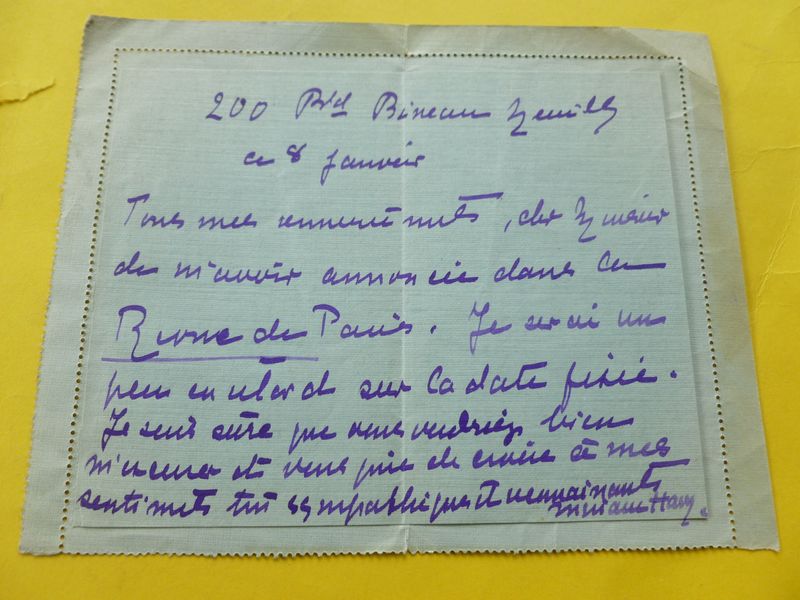 200 Bd Bineau Neuilly
ce 8 Janvier
Tous mes remerciements, cher Monsieur
de m'avoir annoncée dans la
Revue de Paris. Je serai un
peu en retard sur la date fixée.
Je suis sûre que vous voudriez bien
m'excuser et vous prie de croire à mes
sentiments très sympathiques et reconnaissants
Myriam Harry.